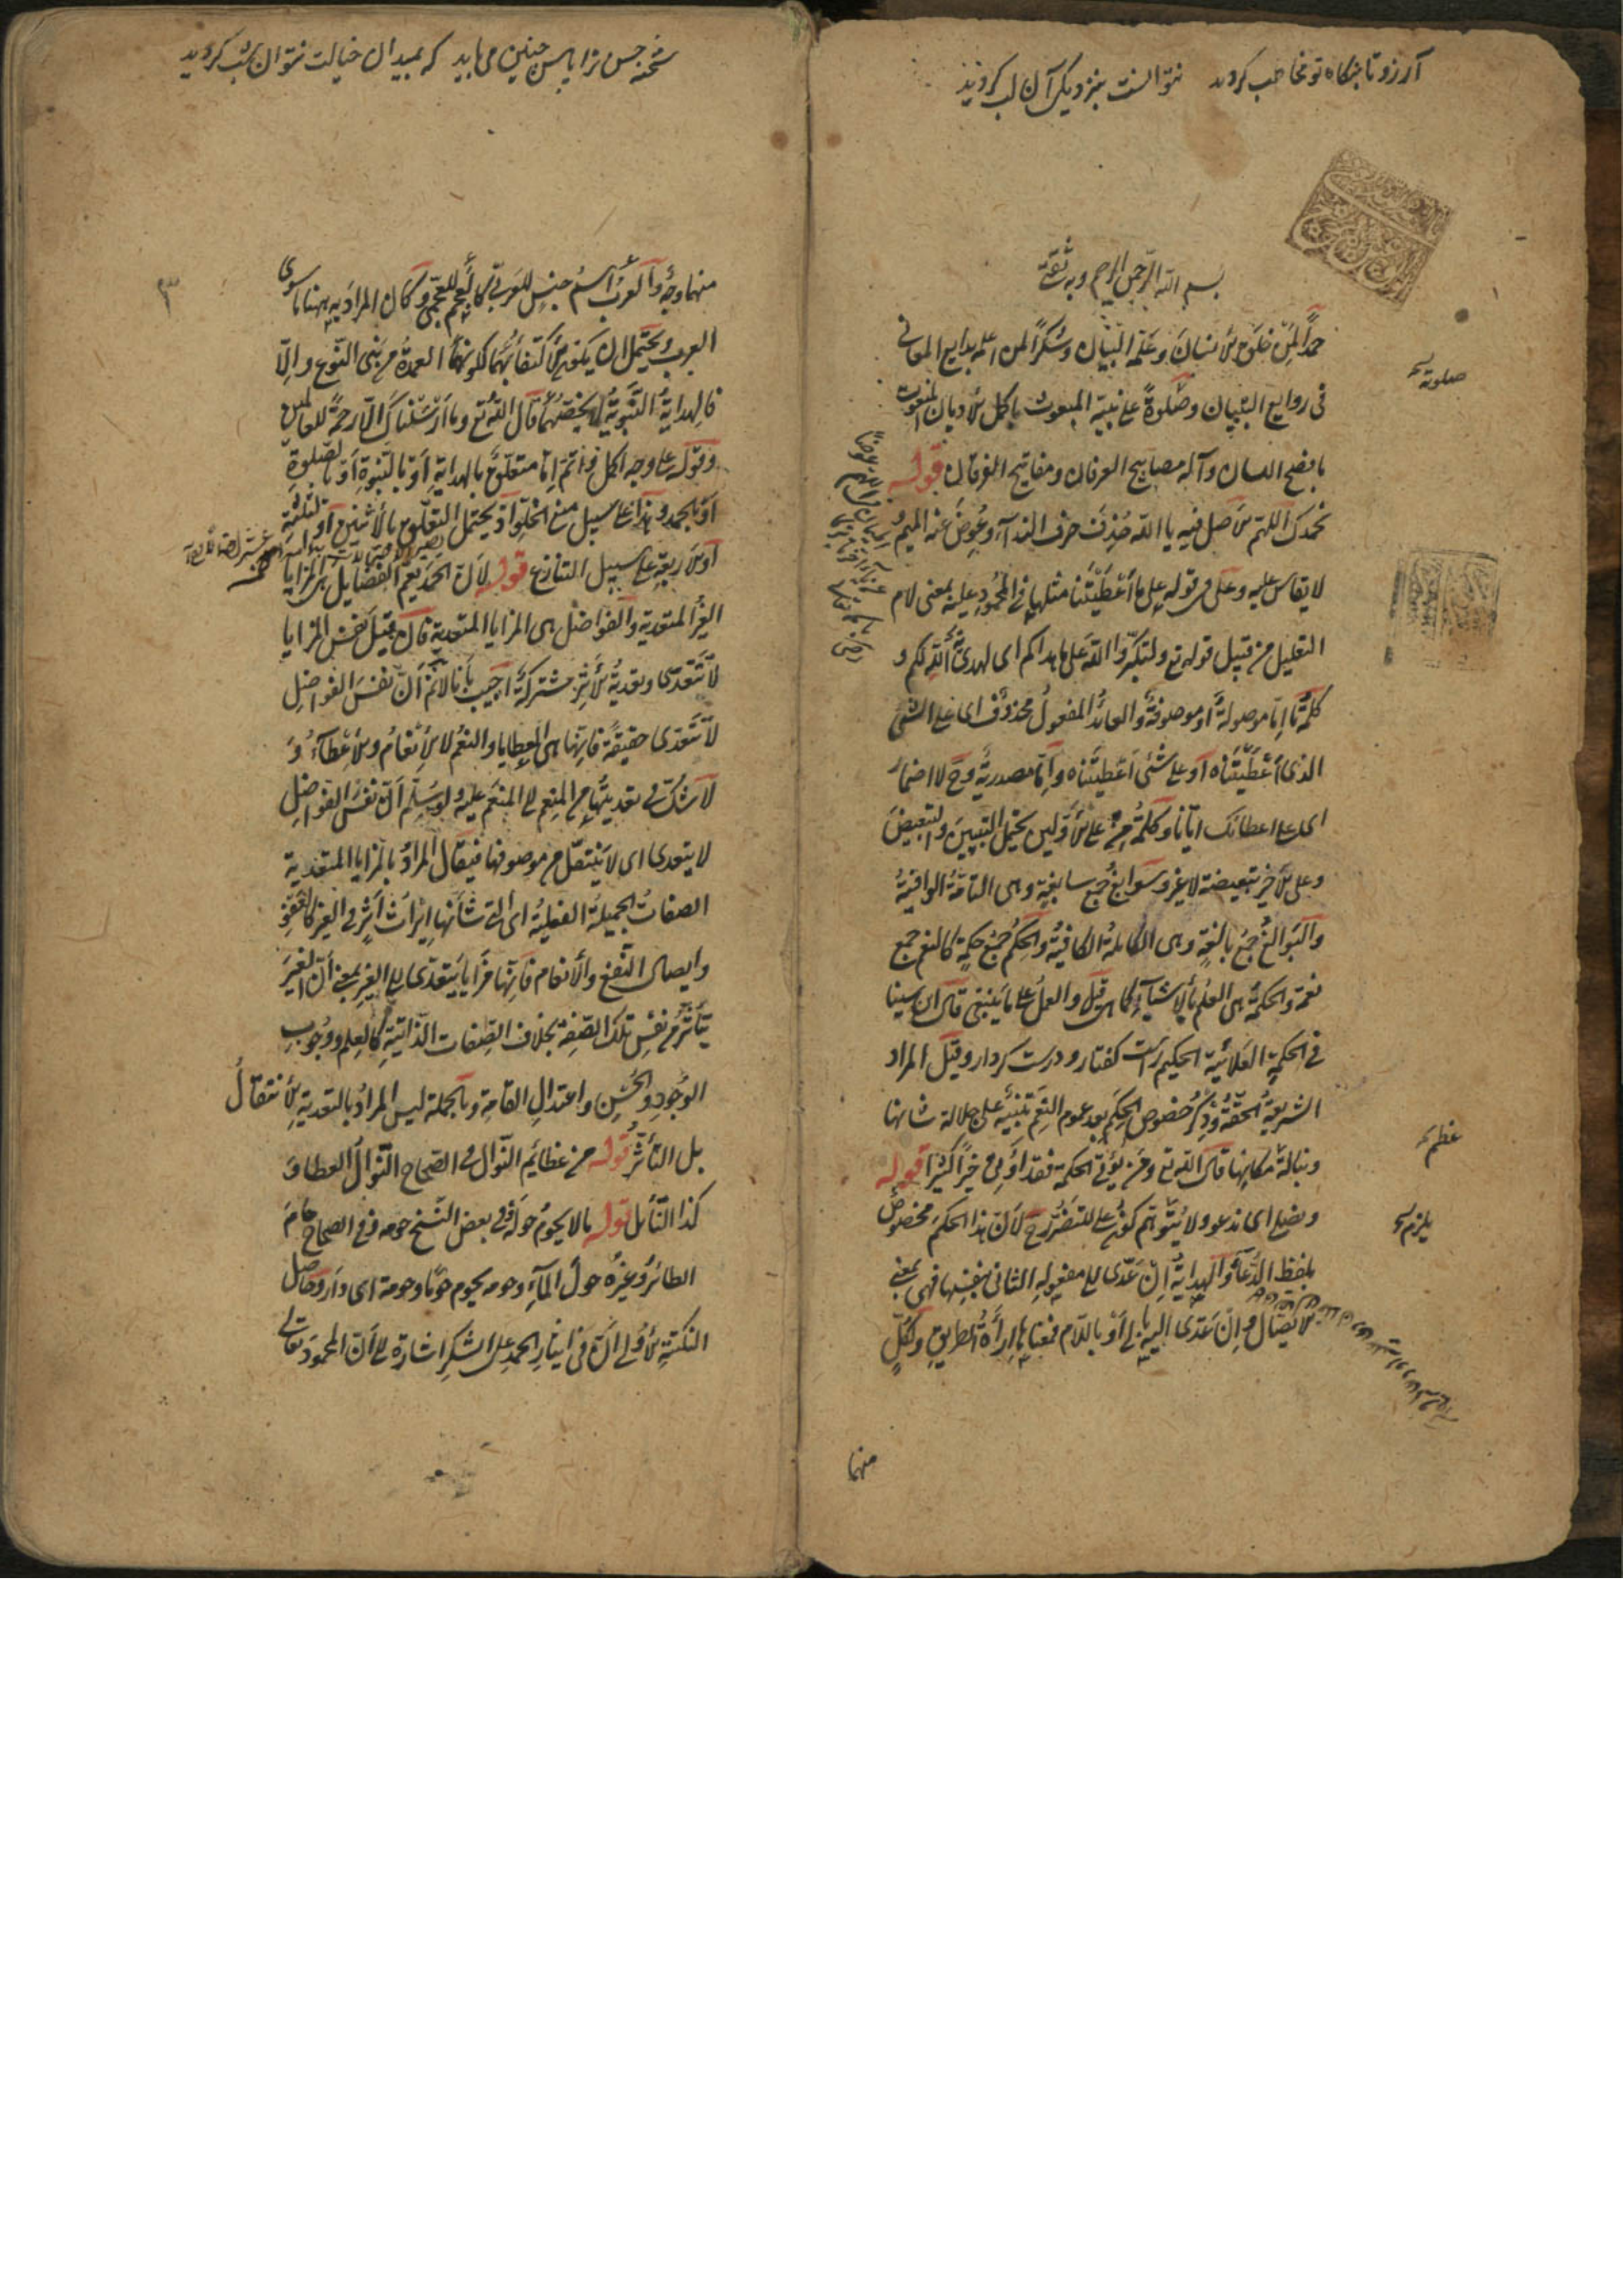 آرزو تا بنگاه تو مخاطب کردند نتوانست بنزدیک آن لب کردند
بسم الله الرحمن الرحيم وبه ثقتي
حمدًا لمن خلق الانسان وعلمه البيان وشكرًا لمن اعلمه بدايع المعاني
في روايع التبيان وصلوةً على نبيه المبعوث باكمل الاديان المنعوت
بافصح اللسان وآله مصابيح العرفان ومفاتيح الفرقان قوله
نحمدك اللهم الاصل فيه يا الله حُذِفَ حرف الندآء وعُوِّضَ عنه الميم و
لا يقاس عليه وعلى في قوله على ما أَعْطَيْتَنا مثلها في المحمود عليه بمعنى لام
التعليل من قبيل قوله تع ولتكبّروا الله على ما هداكم اى لهدايته اياكم و
كلمة ما إمّا موصولةٌ أو موصوفةٌ والعائدُ المفعولُ محذوفٌ اى على الشئ
الذى أَعْطَيْتَناه أو على شئ اَعطيتَناه وإمّا مصدرية وح لا اضمار
اى على اعطائك ايّانا وكلمةُ مِن على الاوّلين يحتمل التبيين والتبعيض
وعلى الاخير تبعيضة لا غير وسوابغ جمع سابغةٍ وهى التامّةُ الوافيةُ
والبوالغُ جمعُ بالغةٍ وهى الكاملة الكافيةُ والحِكَمُ جمع حكمةٍ كالنعم جمع
نعمة والحكمةُ هى العلمُ بالاشيآء كما هى قيل والعملُ على ما ينبغى قال ابن سينا
في الحكمة العلائية الحكيم راست كفتار ودرست كردار وقيل المراد
الشريعةُ الحقّةُ وذِكْرُ خصوص الحِكَم بعد عموم النعم تنبيهٌ على جلالة شانها
ونبالة مكانها قال الله تع ومن يؤتى الحكمة فقد أُوتِىَ خيرًا كثيرًا قوله
ونصلى اى ندعو ولا يُتَوهّم كونُ على للتضرّر ح لأن هذا الحكمَ مخصوصٌ
بلفظ الدُّعآء والهدايةُ إنْ عُدّى الى مفعوله الثانى بنفسها فهى بمعنى
الايصال وإنْ عُدّى اليه بالى أو باللام فمعناها إراءةُ الطريق ولكلٍّ
منهما
صلوته
عظم
يلزم
شحنه حسن ترا پاس چنین می باید که بمیدان خیالت نتوان شب کردید
٣
منهما وجهٌ والعربُ اسمُ جنسٍ للعربىّ كالعجم للعجمى وكان المراد به ههنا ما سوى
العرب ويحتمل ان يكون الاكتفآء بهما لكونهما العمدة من بنى النوع وإلّا
فالهداية النبوية لا يخصّهما قال الله تع وما أرسلناك إلّا رحمةً للعالمين
وقوله على وجه اكمل وأتم إمّا متعلّق بالهداية أو بالنبوة أو بالصلوة
او بالحمد وهذا على سبيل منع الخلوّ اذ يحتمل التعلّق بالاثنين أو الثلثة
أو الاربعة على سبيل التنازع قوله لان الحمد يعم الفضايل هى المزايا
الغير المتعدية والفواضل هى المزايا المتعدية فان قيل نفس المزايا
لا تتعدّى وتعدية الاثر مشتركةٌ اجيب بأنّا لا نمّ أنّ نفسَ الفواضل
لا تتعدى حقيقةً فانها هى العطايا والنعم لا الانعامُ والاعطآءُ و
لا شكّ في تعديتها من المنعم الى المنعَم عليه ولو سلّم أن نفس الفواضل
لا يتعدى اى لا ينتقل من موصوفها فيقال المرادُ بالمزايا المتعدية
الصفاتُ الجميلةُ الفعليةُ اى التى شأنها ايراثُ أثرٍ في الغير كالعفو
وايصال النفع والانعام فانها مزايا يتعدّى الى الغير بمعنى أن الغيرَ
يتأثّر من نفس تلك الصفة بخلاف الصفات الذّاتية كالعلم ووجوب
الوُجودِ والحُسْنِ واعتدالِ القامة وبالجملة ليس المرادُ بالتعدية الانتقالُ
بل التأثّرُ قوله من عظائم النّوال في الصحاح النّوالُ العطاءُ و
كذا النائل قوله ما لا يحومُ حولَه في بعض النسخ حومه وفى الصحاح حامَ
الطائرُ وغيرُه حولَ المآءِ وحومه يحوم حومًا وحومة اى دار وحاصل
النكتة الاولى أنّ في ايثار الحمد على الشكر اشارة الى أنّ المحمود تعالى